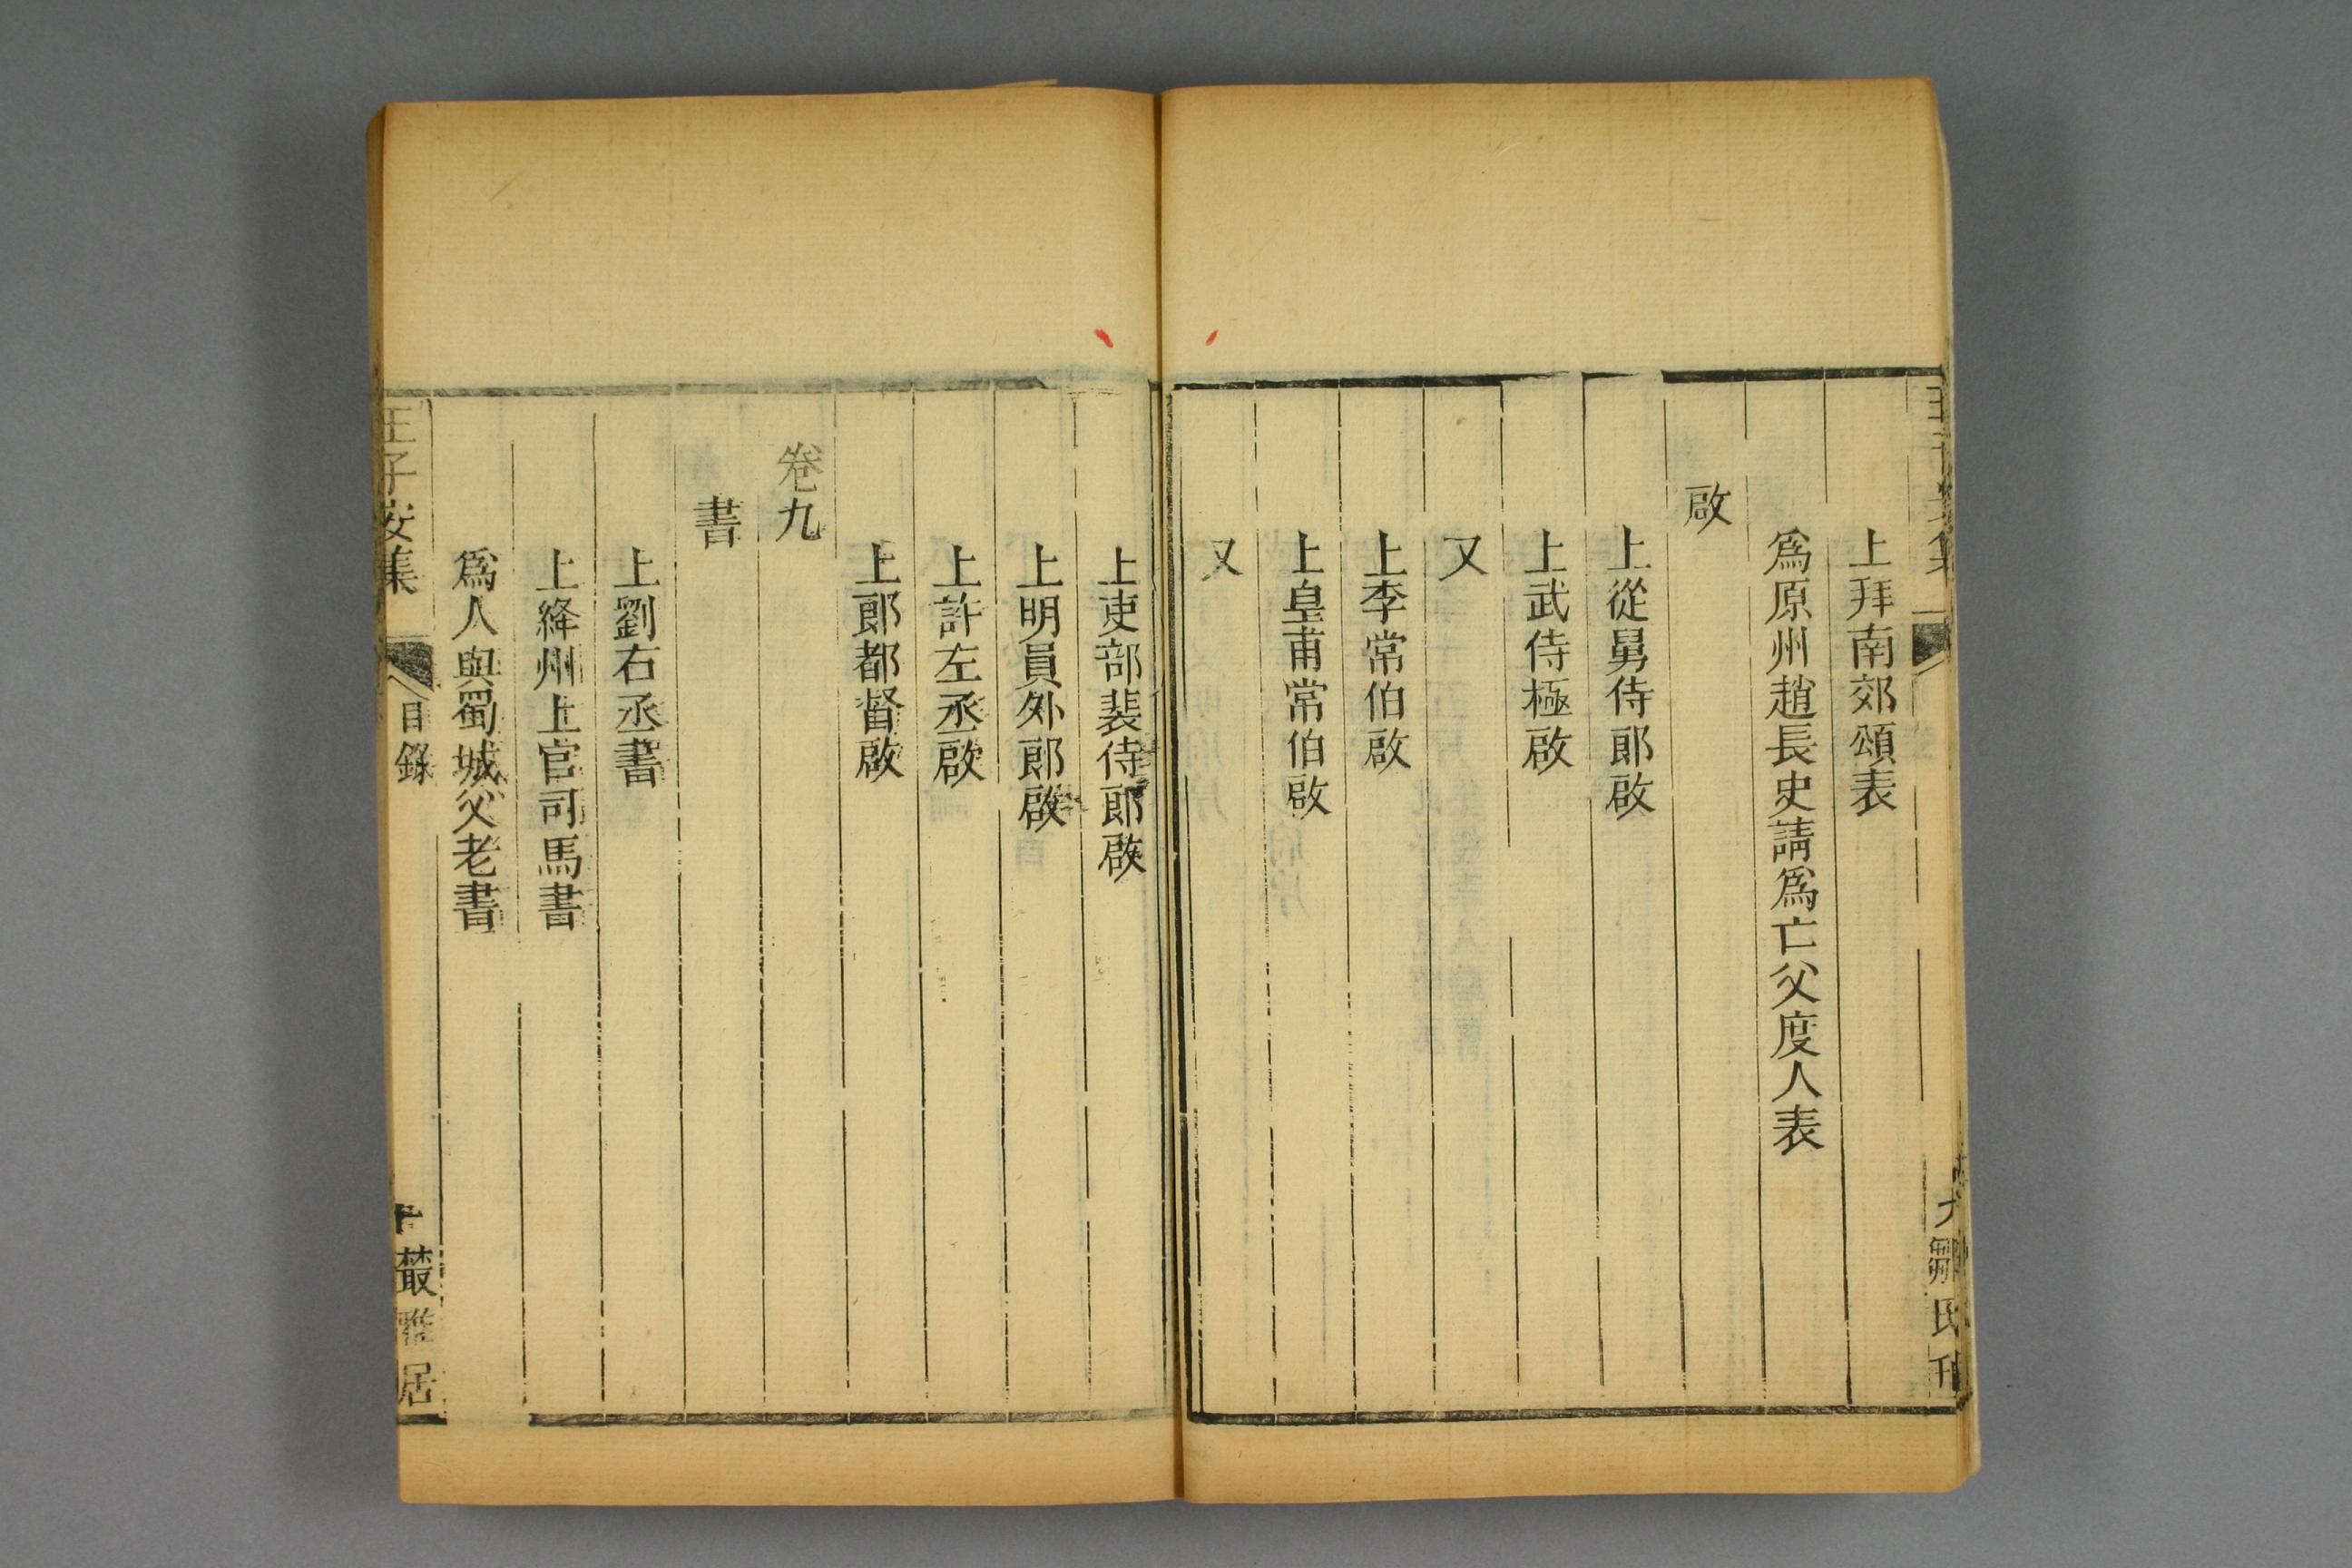 上拜南郊頌表
爲原州趙長史請爲亡父度人表
啟
上從舅侍郎啟
上武侍極啟
又
上李常伯啟
上皇甫常伯啟
又
上吏部裴侍郎啟
上明員外郎啟
上許左丞啟
上郎都督啟
卷九
書
上劉右丞書
上絳州上官司馬書
爲人與蜀城父老書
王子安集
目錄
十
叢雅居
鄒氏刊